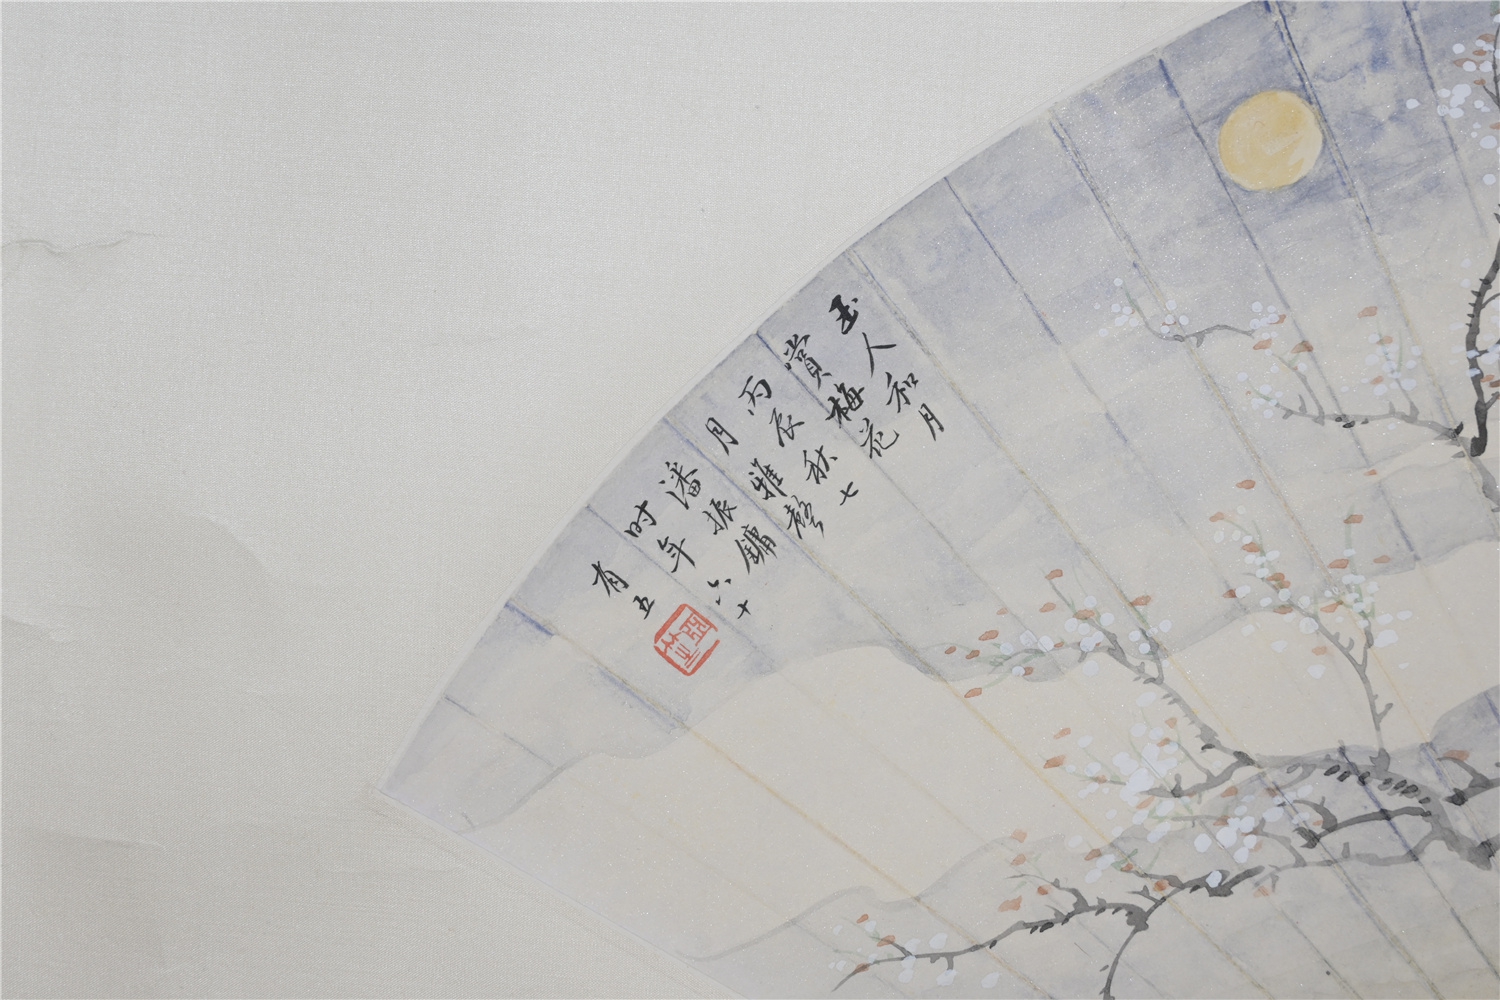 玉人和月
賞梅花
丙辰秋七
月雅聲
潘振鏞
时年六十
有五
亞笙